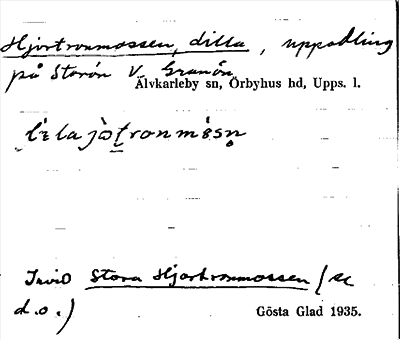 Hjortronmossen, lilla, uppodling
på Storön V. Granön
Älvkarleby sn, Örbyhus hd, Upps. l.
lɩ̀la jɔ̀ṭronmɵ́sn̥
Invid Stora Hjortronmossen (se
d.o.)
Gösta Glad 1935.